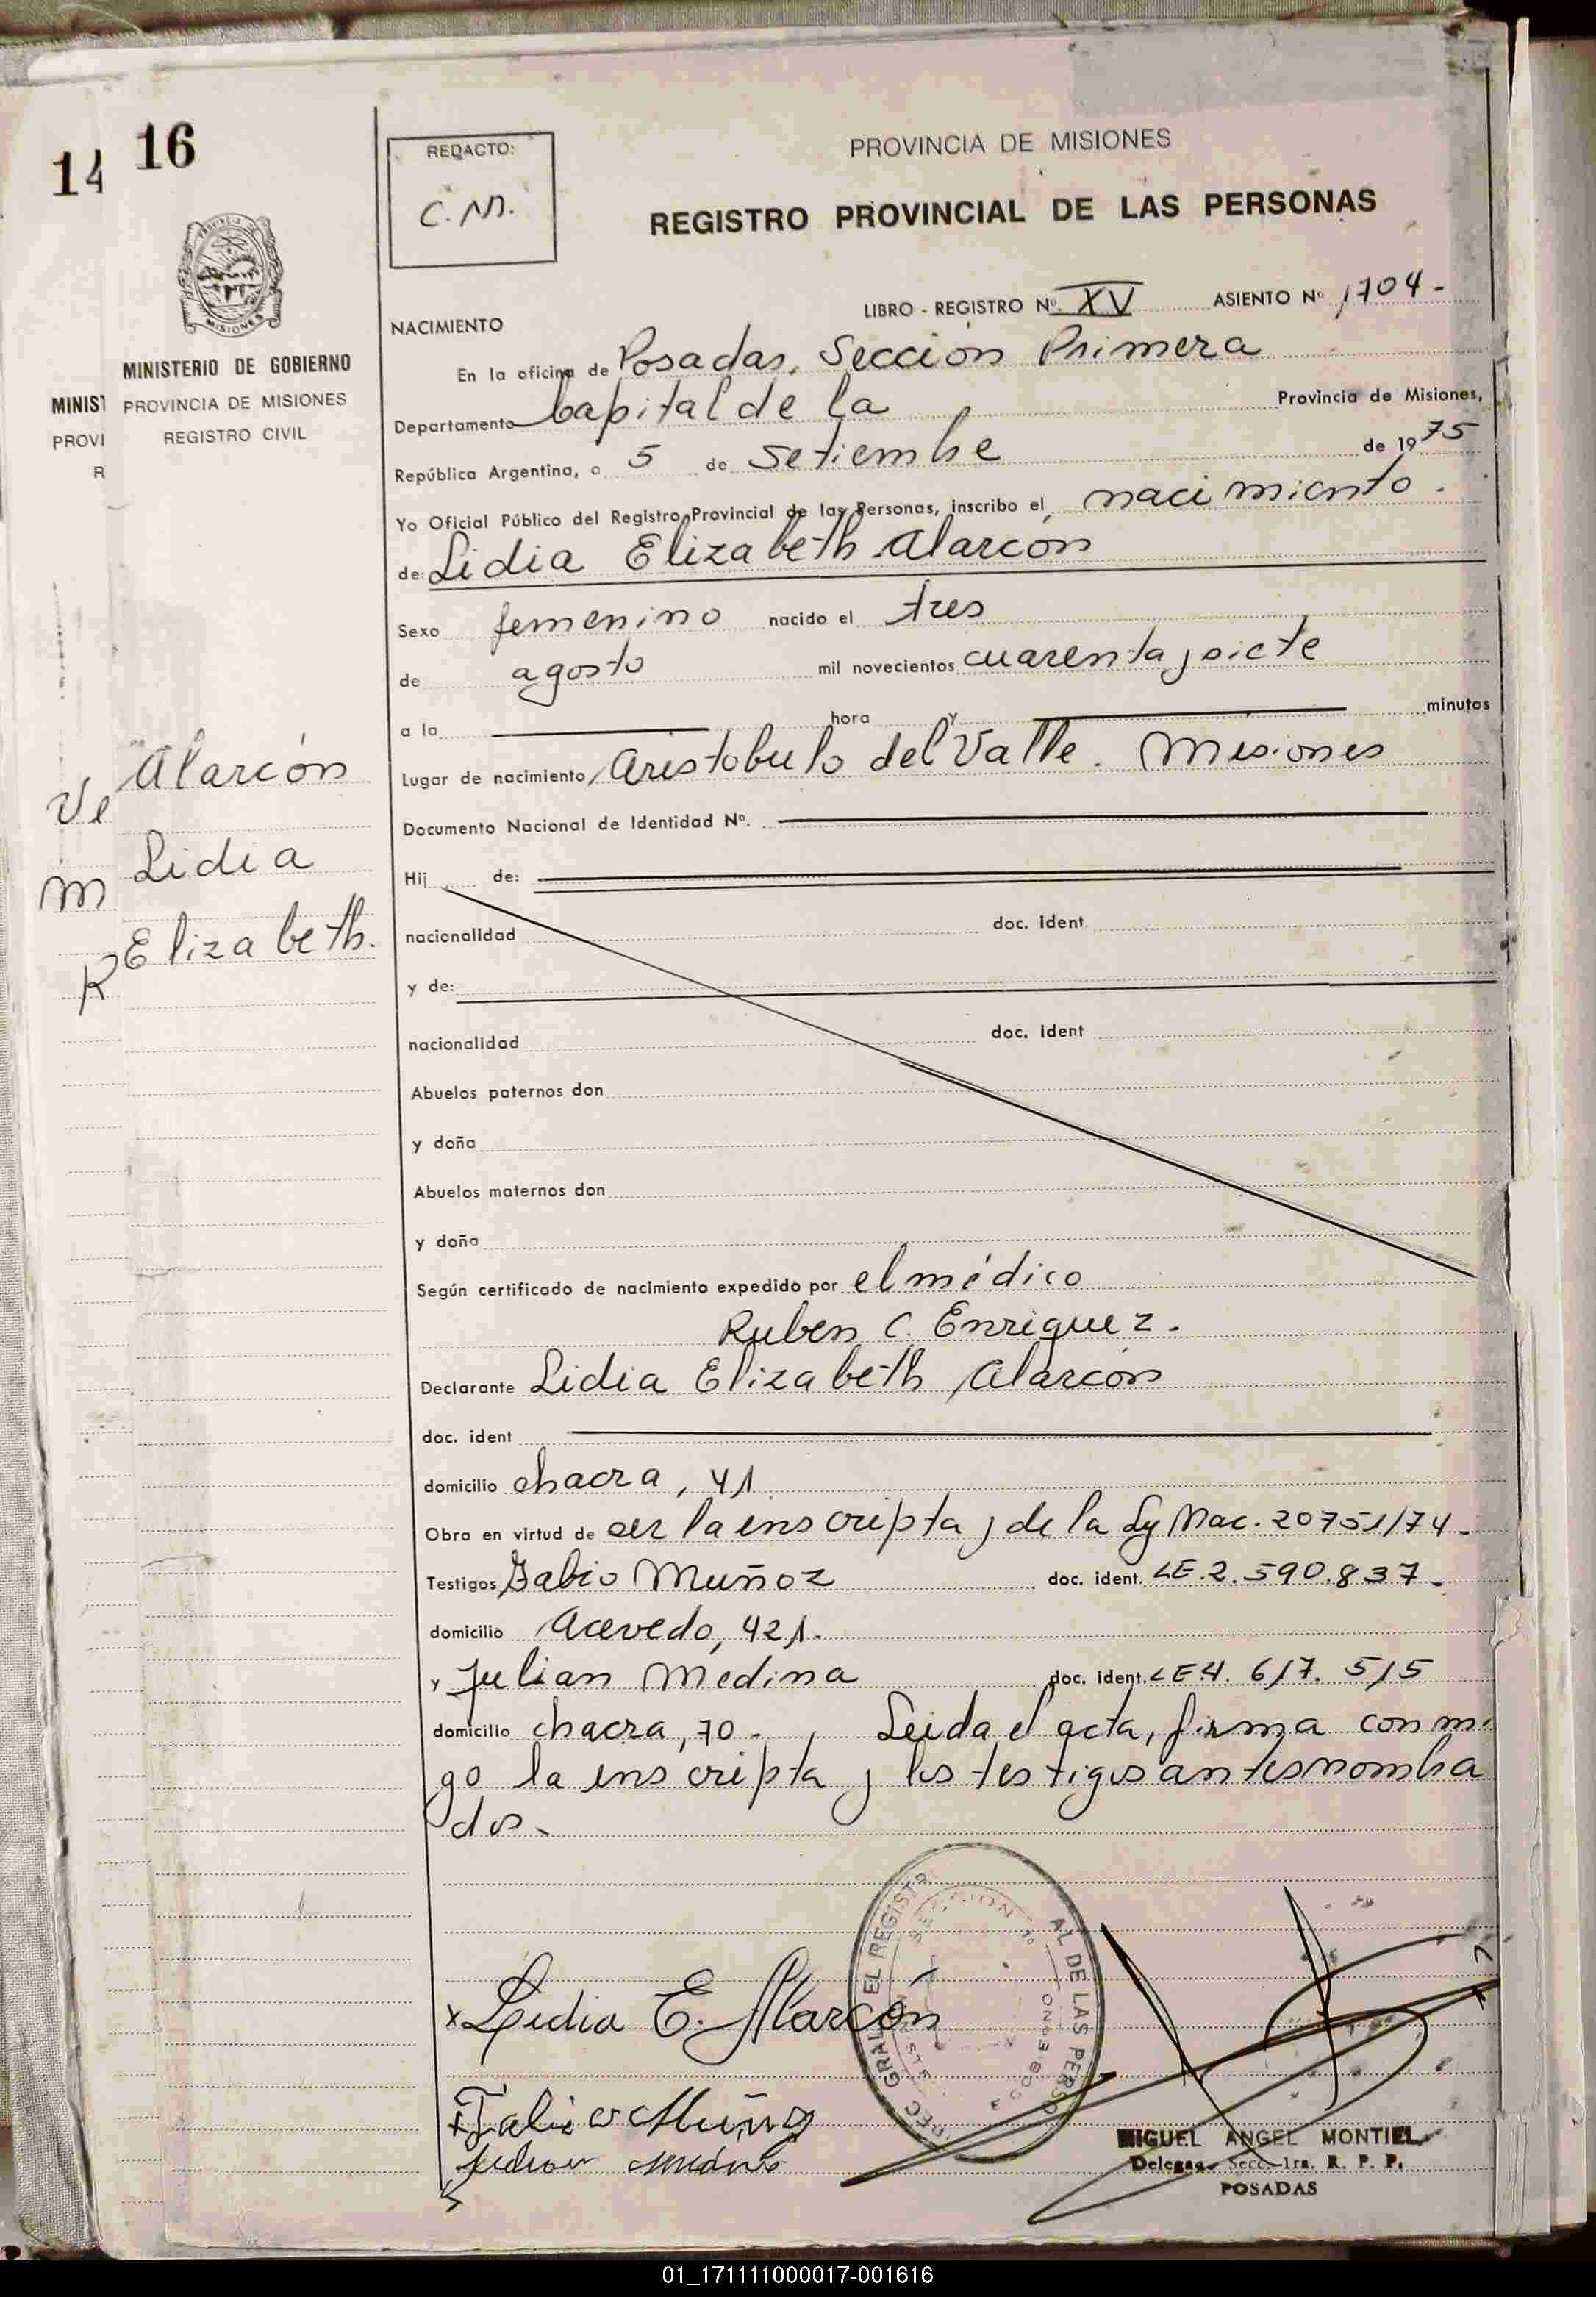 14 16
REDACTO:
C.M.
PROVINCIA DE MISIONES
REGISTRO PROVINCIAL DE LAS PERSONAS
LIBRO - REGISTRO Nº. XV ASIENTO Nº 1704 -
NACIMIENTO
MISIONES
MINISTERIO DE GOBIERNO
PROVINCIA DE MISIONES
REGISTRO CIVIL
MINIST
PROVI
R
En la oficina de Posadas, Sección Primera
Departamento Capital de la Provincia de Misiones,
República Argentina, a 5 de Setiembre de 1975
Yo Oficial Público del Registro Provincial de las Personas, inscribo el nacimiento.
de: Lidia Elizabeth Alarcón
Sexo femenino nacido el tres
de agosto mil novecientos cuarenta y siete
a la hora y minutos
Lugar de nacimiento Aristobulo del Valle. Misiones
Documento Nacional de Identidad Nº.
Hij de:
nacionalidad doc. ident
y de:
nacionalidad doc. ident
Abuelos paternos don
y doña
Abuelos maternos don
y doña
Alarcón
Lidia
Elizabeth.
Ve
M
R
Según certificado de nacimiento expedido por el médico
Ruben C. Enriquez.
Declarante Lidia Elizabeth Alarcón
doc. ident
domicilio chacra, 41
Obra en virtud de ser la inscripta y de la Ley Nac. 20751/74.
Testigos Fabio Muñoz doc. ident. LE.2.590.837.
domicilio Acevedo, 421.
y Julian Medina doc. ident. LE4. 617. 515
domicilio chacra, 70 - Leida el acta, firma conmi
go la inscripta y los testigos antesnombra
dos.
x Lidia E. Alarcón
MIGUEL ANGEL MONTIEL
Delegado Secc. 1ra. R. P. P.
POSADAS
01_171111000017-001616